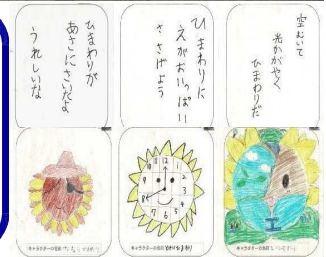 空むいて
光かがやく
ひまわりだ
ひまわりに
えがおいっぱい
ささげよう
ひまわりが
あさにさいたよ
うれしいな
12
1
2
3
4
5
6
7
8
9
10
11
キャラクターの名前
キャラクターの名前
キャラクターの名前